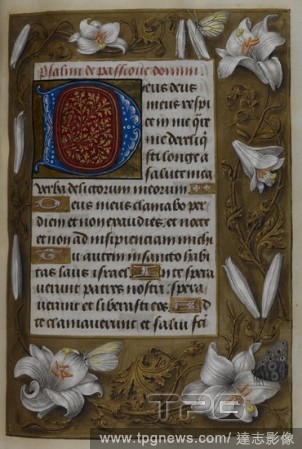 Psalmi de passione domini
Deus deus
meus respi
ce in me qre
me dereliq
sti longe a
salute mea
verba delictorum meorum
Deus meus clamabo per
diem et non exaudies et nocte
et non ad insipientiam michi
Tu autem in sancto habi
tas laus israel In te spera
verunt patres nostri spera
verunt et liberasti eos Ad
te clamaverunt et salvi fcti
TPG
www.tpgnews.com/ 達志影像